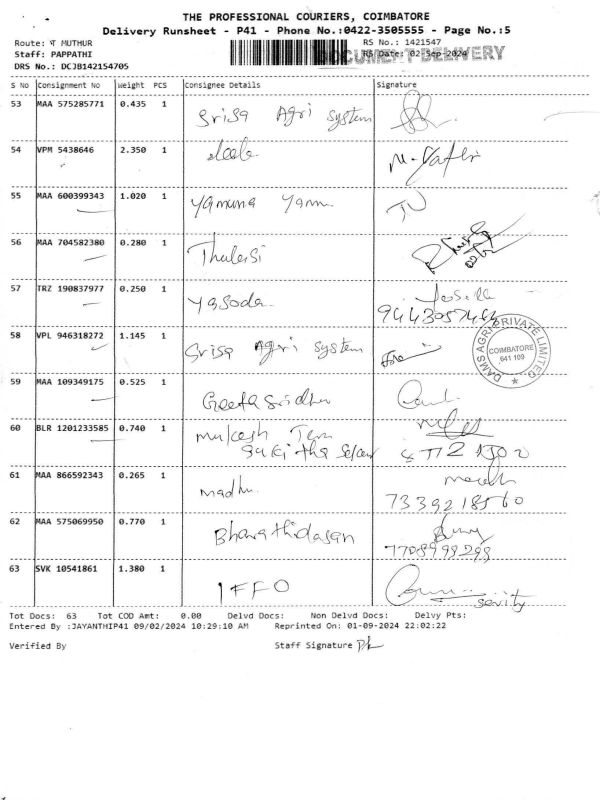 THE PROFESSIONAL COURIERS, COIMBATORE
Delivery Runsheet - P41 - Phone No.:0422-3505555 - Page No.:5
Route: ৰ MUTHUR RS No.: 1421547
Staff: PAPPATHI RS Date: 02-Sep-2024
DOCUMENT DELIVERY
DRS No.: DCJB142154705
S No Consignment No Weight PCS Consignee Details Signature
53 MAA 575285771 0.435 1 Srisa Agri System
54 VPM 5438646 2.350 1
55 MAA 600399343 1.020 1 Yamuna
56 MAA 704582380 0.280 1 Thulasi
57 TRZ 190837977 0.250 1 Yasoda
58 VPL 946318272 1.145 1 Srisa Agri System
DAMS AGRI PRIVATE LIMITED
COIMBATORE
641 109
59 MAA 109349175 0.525 1 Geetasridhar
60 BLR 1201233585 0.740 1 Mukesh
61 MAA 866592343 0.265 1 madhu
7339218560
62 MAA 575069950 0.770 1 Bharathidasan
7708998298
63 SVK 10541861 1.380 1 IFFO
Tot Docs: 63 Tot COD Amt: 0.00 Delvd Docs: Non Delvd Docs: Delvy Pts:
Entered By :JAYANTHIP41 09/02/2024 10:29:10 AM Reprinted On: 01-09-2024 22:02:22
Verified By Staff Signature